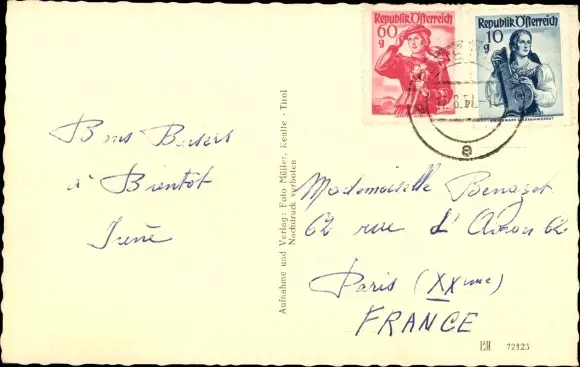 Republik Österreich
60
g
Republik Österreich
10
g
6.51
Bons Baisers
à Bientôt
Irène
Aufnahme und Verlag: Foto Müller, Reutte - Tirol
Nachdruck verboten
Mademoiselle Benazet
62 rue d'Avron 62
Paris (XXème)
FRANCE
72123